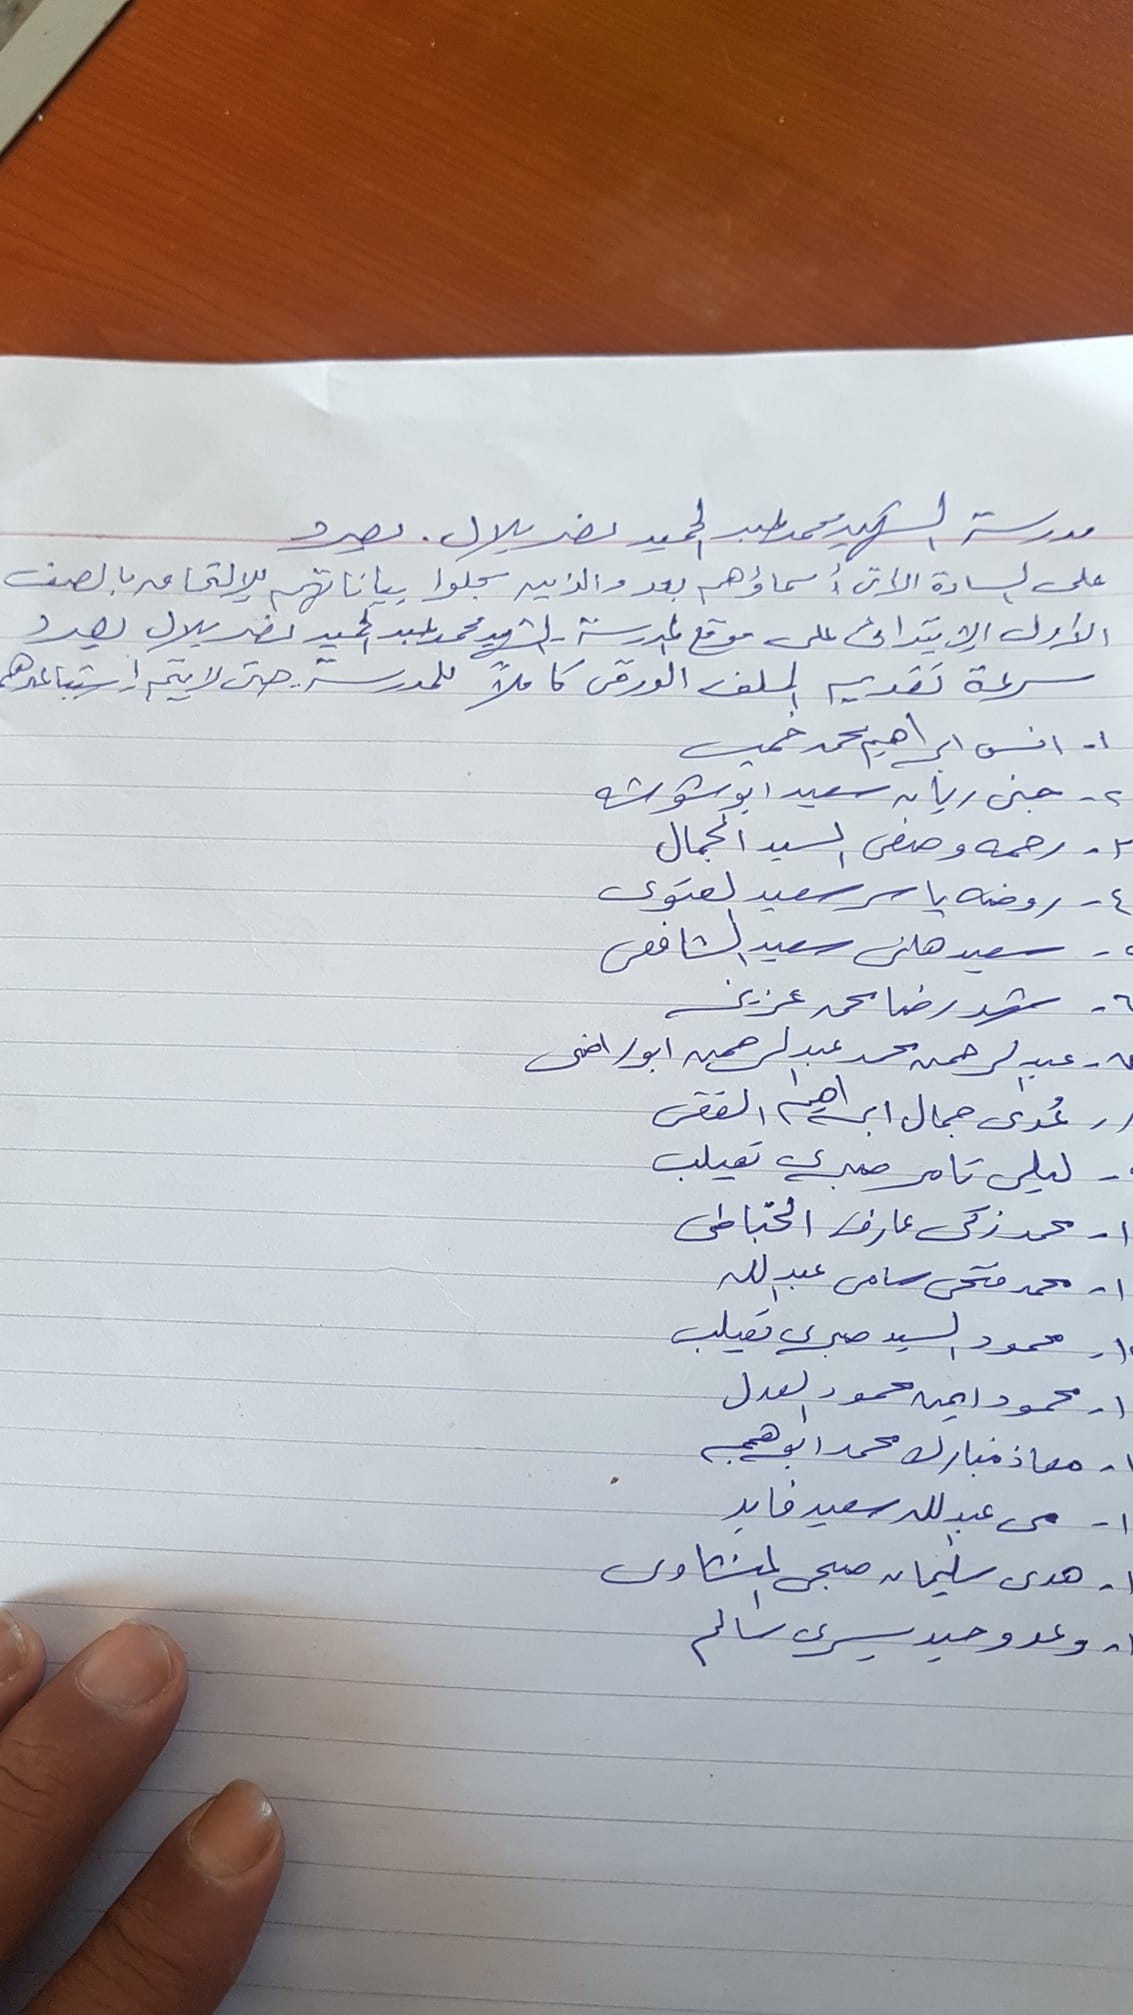 مدرسة الشهيد محمد عبد الحميد نصر بلال. بصرد
على السادة الآتى أسماؤهم بعد والذين سجلوا بياناتهم للإلتحاق بالصف
الأول الإبتدائى على موقع المدرسة الشهيد محمد عبد الحميد نصر بلال بصرد
سرعة تقديم الملف الورقى كاملاً للمدرسة. حتى لا يتم إستبعادهم
١- انس ابراهيم محمد خميس
٢- جنى ريان سعيد ابوشوشه
٣- رحمه وصفى السيد الجمال
٤- روضه ياسر سعيد
- سعيد هانى سعيد الشافعى
٦- شهد رضا محمد
- عبد الرحمن محمد عبد الرحمن ابوراضى
- عُدى جمال ابراهيم الفقى
- ليلى تامر صبرى تعيلب
١- محمد زكى عارف
١- محمد فتحى سامى عبدالله
١- محمود السيد صبرى تعيلب
١- محمود ايمن محمود العدل
١- معاذ مبارك محمد
١- مى عبدالله سعيد فايد
١- هدى سليمان صبحى المنشاوى
١- وعد وحيد يسرى سالم